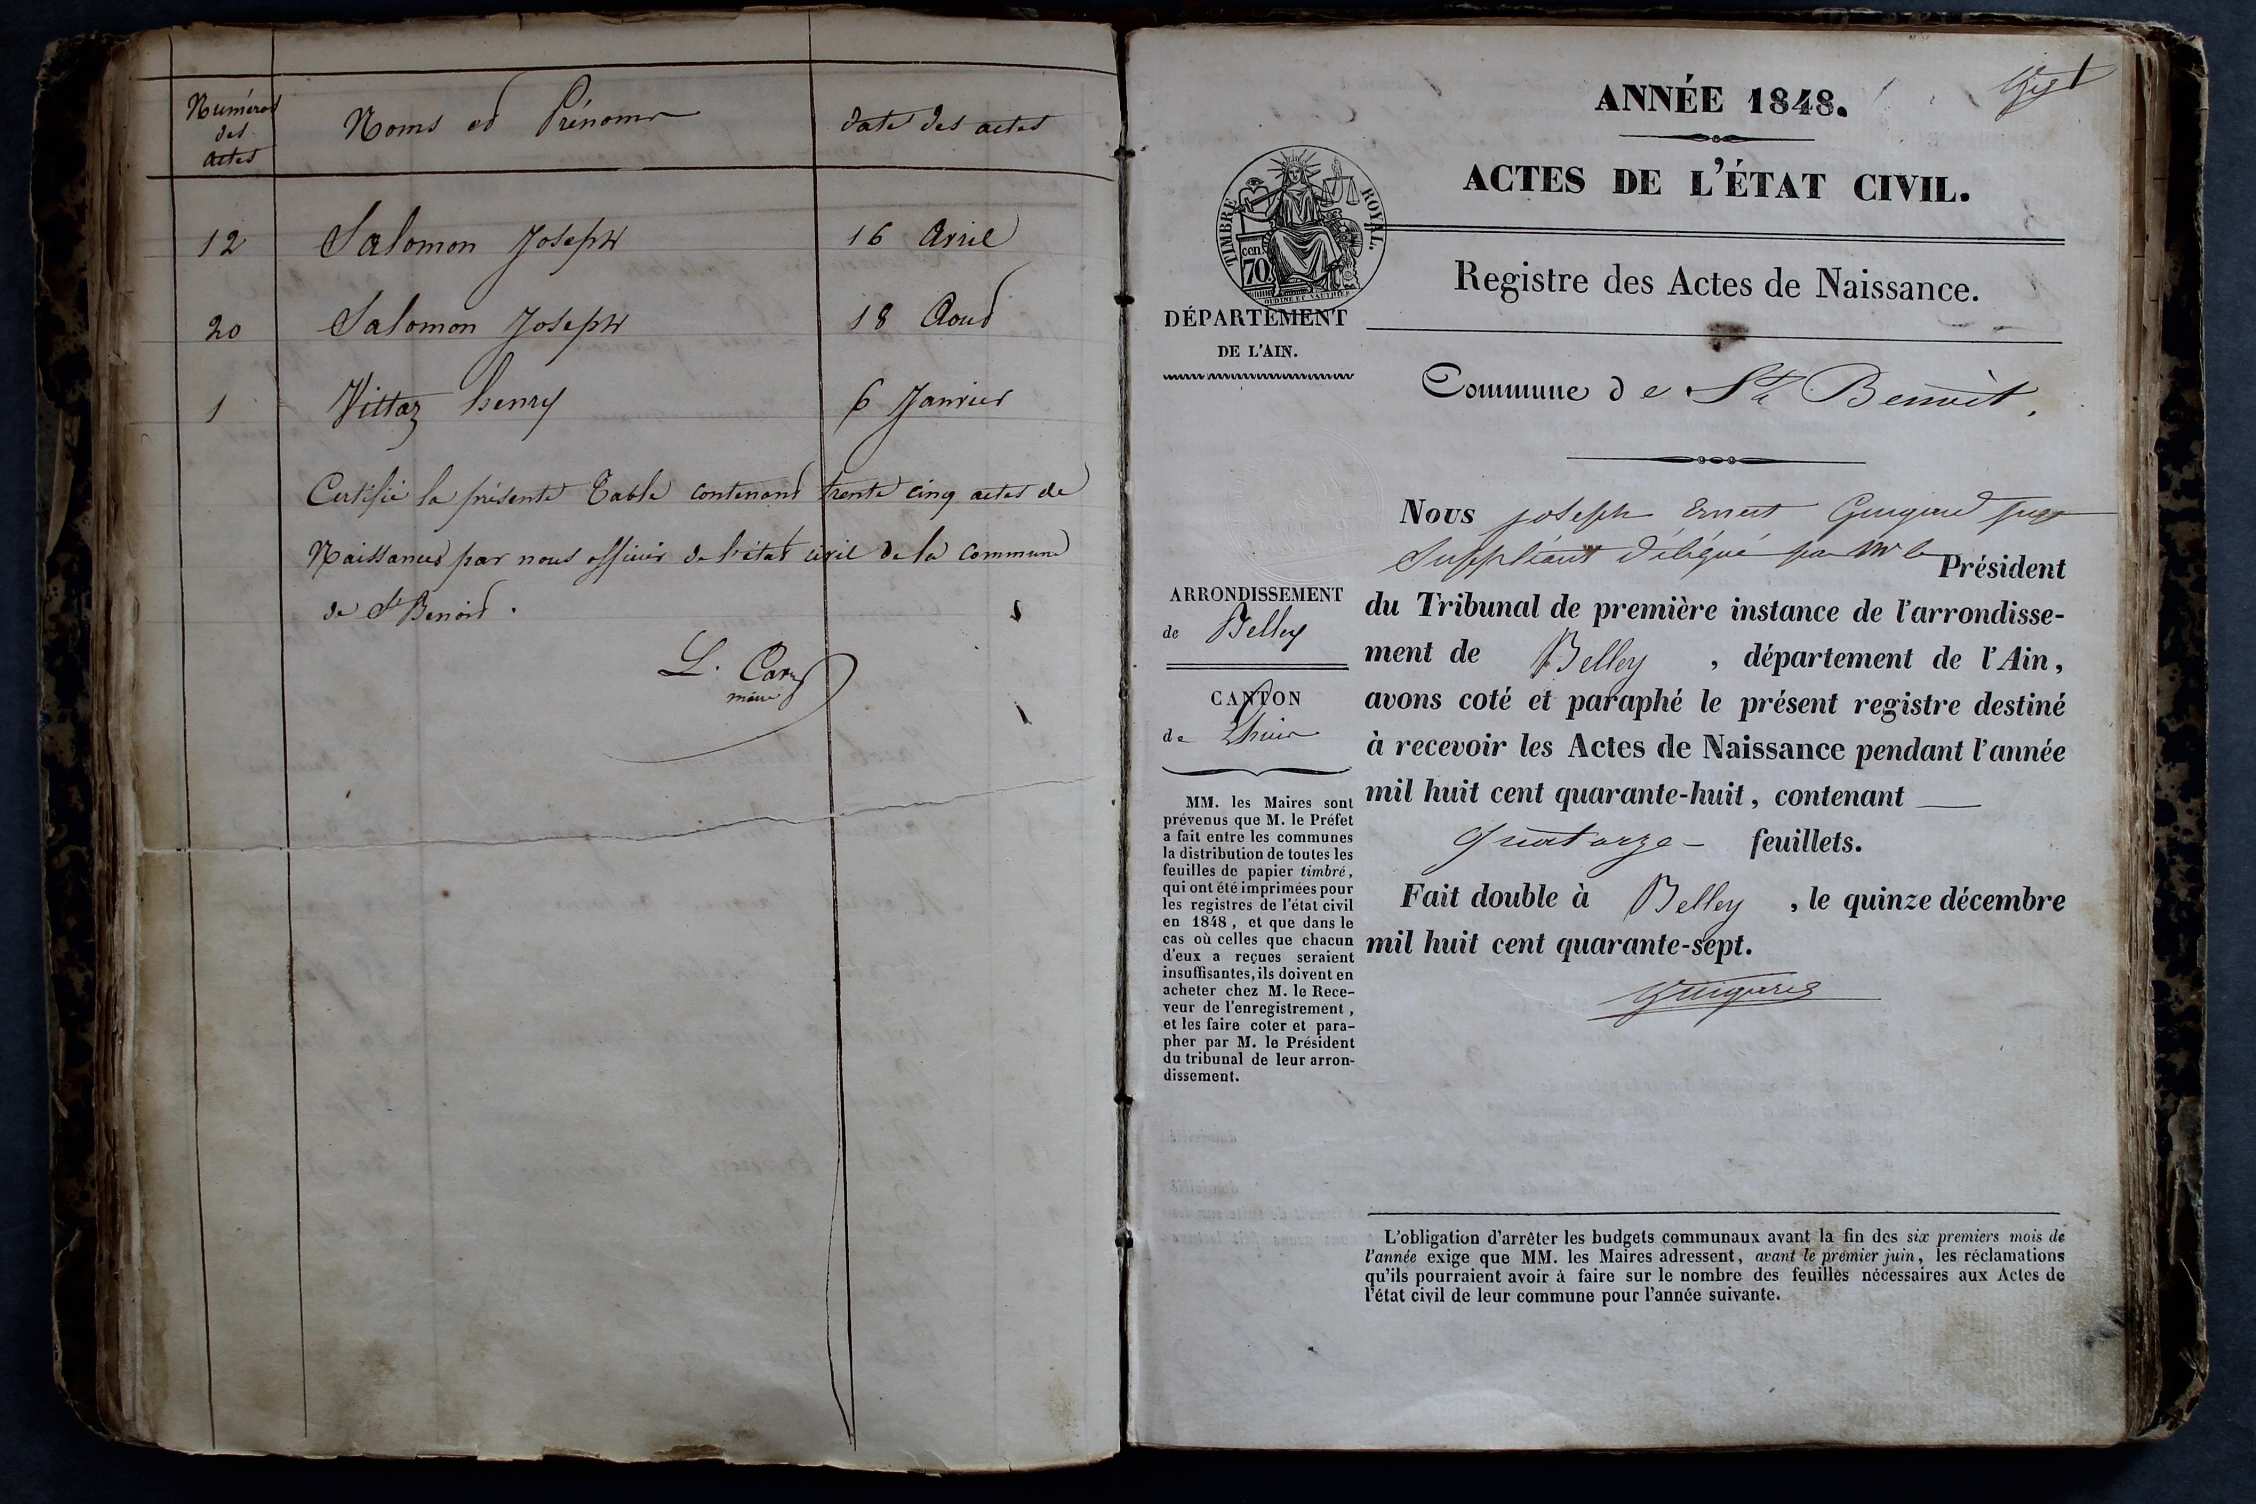 Numéros des actes
Noms et Prénoms
date des actes
12 Salomon Joseph 16 Avril
20 Salomon Joseph 18 Aout
1 Vittaz henry 6 Janvier
Certifié la présente Table contenant trente cinq actes de
Naissances par nous officier de l'état civil de la commune
de St Benoit.
L. Cary
maire
ANNÉE 1848.
ACTES DE L'ÉTAT CIVIL.
TIMBRE ROYAL.
70 cen.
OUDINÉ ET VAUTHIER
Registre des Actes de Naissance.
DÉPARTEMENT
DE L'AIN.
Commune de St Benoit.
ARRONDISSEMENT
de Belley
CANTON
de Lhuis
MM. les Maires sont
prévenus que M. le Préfet
a fait entre les communes
la distribution de toutes les
feuilles de papier timbré,
qui ont été imprimées pour
les registres de l'état civil
en 1848, et que dans le
cas où celles que chacun
d'eux a reçues seraient
insuffisantes, ils doivent en
acheter chez M. le Rece-
veur de l'enregistrement,
et les faire coter et para-
pher par M. le Président
du tribunal de leur arron-
dissement.
Nous joseph Ernest juge
Suppléant délégué par Mr le Président
du Tribunal de première instance de l'arrondisse-
ment de Belley, département de l'Ain,
avons coté et paraphé le présent registre destiné
à recevoir les Actes de Naissance pendant l'année
mil huit cent quarante-huit, contenant
quatorze feuillets.
Fait double à Belley, le quinze décembre
mil huit cent quarante-sept.
L'obligation d'arrêter les budgets communaux avant la fin des six premiers mois de
l'année exige que MM. les Maires adressent, avant le premier juin, les réclamations
qu'ils pourraient avoir à faire sur le nombre des feuilles nécessaires aux Actes de
l'état civil de leur commune pour l'année suivante.